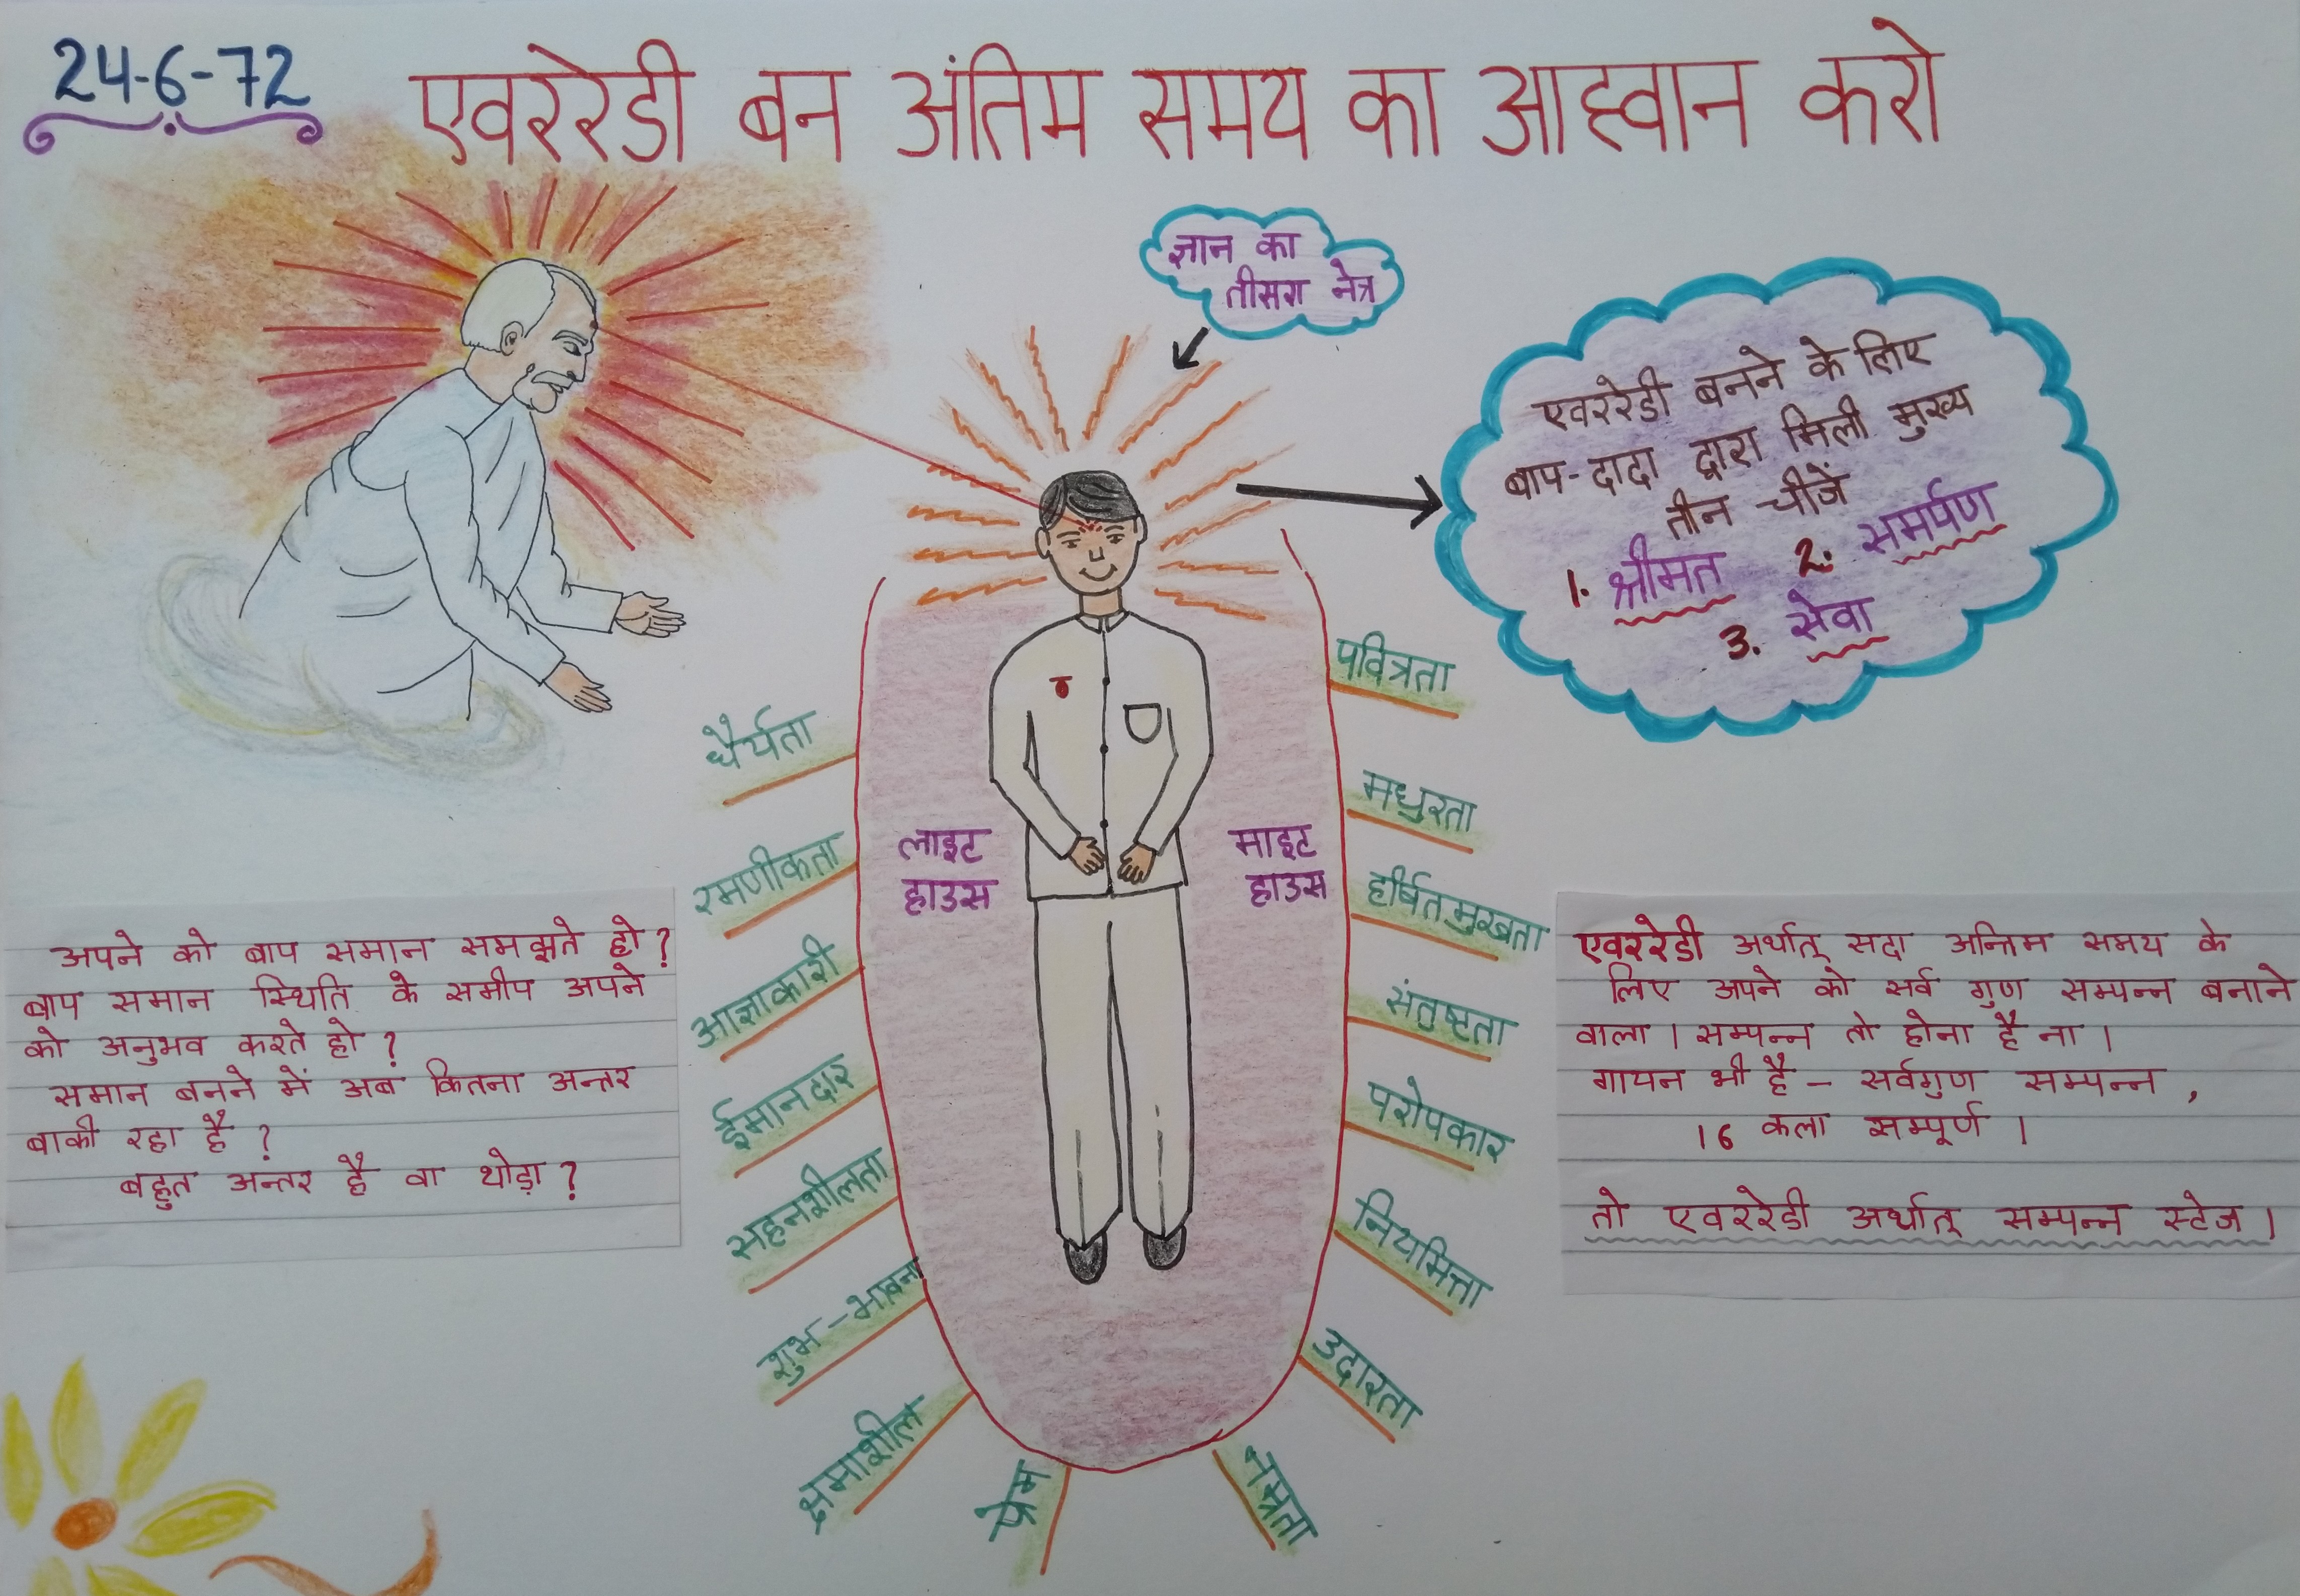 24-6-72
एवररेडी बन अंतिम समय का आह्वान करो
ज्ञान का
तीसरा नेत्र
एवररेडी बनने के लिए
बाप-दादा द्वारा मिली मुख्य
तीन चीजें
1. श्रीमत 2. समर्पण
3. सेवा
धैर्यता
रमणीकता
आज्ञाकारी
ईमानदार
सहनशीलता
शुभ-भावना
क्षमाशील
प्रेम
लाइट
हाउस
माइट
हाउस
पवित्रता
मधुरता
हर्षितमुखता
संतुष्टता
परोपकार
नियमित्ता
उदारता
नम्रता
अपने को बाप समान समझते हो?
बाप समान स्थिति के समीप अपने
को अनुभव करते हो?
समान बनने में अब कितना अन्तर
बाकी रहा है?
बहुत अन्तर है वा थोड़ा?
एवररेडी अर्थात् सदा अन्तिम समय के
लिए अपने को सर्व गुण सम्पन्न बनाने
वाला। सम्पन्न तो होना है ना।
गायन भी है - सर्वगुण सम्पन्न,
16 कला सम्पूर्ण।
तो एवररेडी अर्थात् सम्पन्न स्टेज।